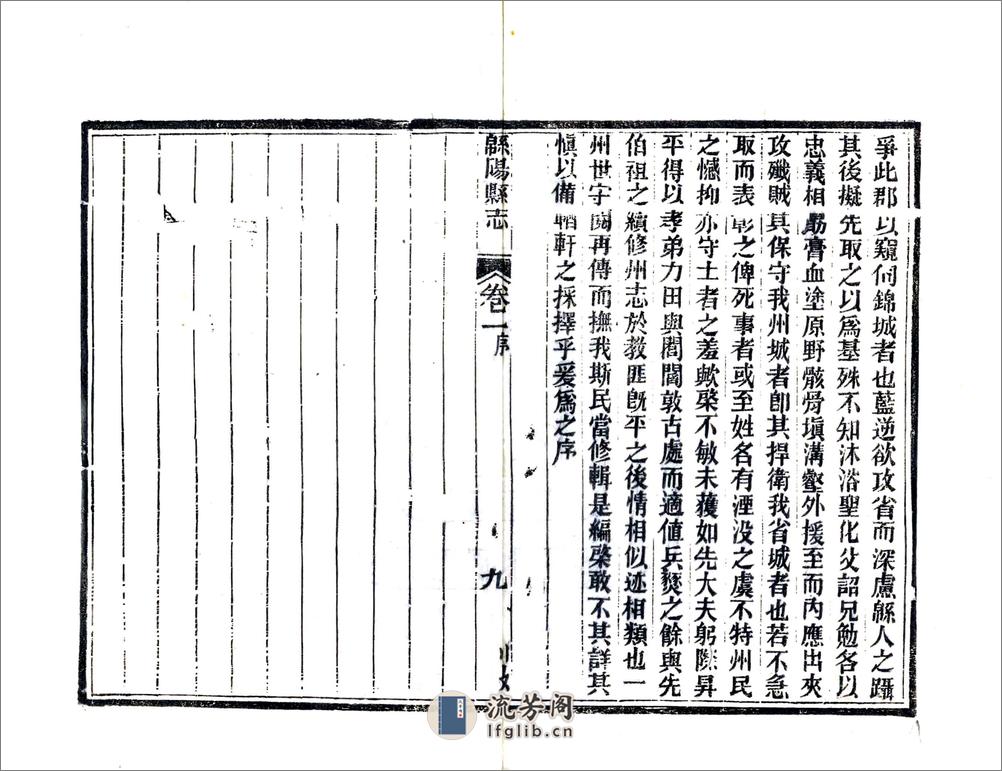 爭此郡以窺伺錦城者也藍逆欲攻省而深慮緜人之躡
其後擬先取之以爲基殊不知沐浴聖化父詔兄勉各以
忠義相勵膏血塗原野骸骨塡溝壑外援至而內應出夾
攻殲賊其保守我州城者卽其捍衛我省城者也若不急
取而表彰之俾死事者或至姓名有湮没之虞不特州民
之憾抑亦守土者之羞歟棨不敏未蔆如先大夫躬際昇
平得以孝弟力田與閭閻敦古處而適値兵燹之餘與先
伯祖之續修州志於教匪旣平之後情相似迹相類也一
州世守閱再傳而撫我斯民當修輯是編棨敢不其詳其
愼以備輶軒之採擇乎爰爲之序
緜陽縣志
卷一
序
九
流芳阁
lfglib.cn